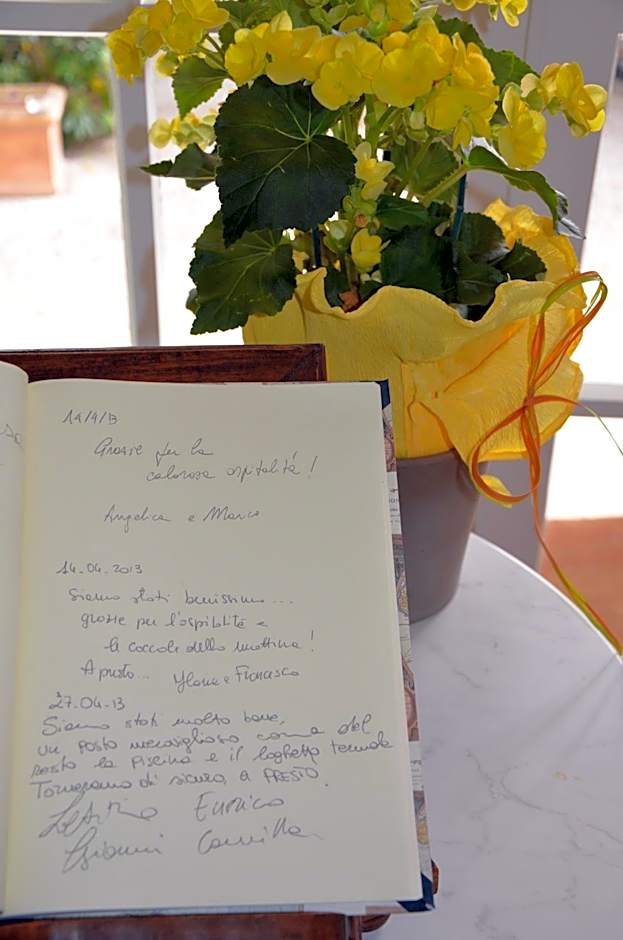 14/4/13
Grazie per la
calorosa ospitalità!
Angelica e Marco
14.04.2013
Siamo stati benissimo...
grazie per l'ospitalità e
le coccole della mattina!
A presto... Ylenia e Francesco
27.04.13
Siamo stati molto bene,
un posto meraviglioso come del
resto la piscina e il laghetto termale
Torneremo di sicuro a PRESTO.
Enrico
Gianni Camilla